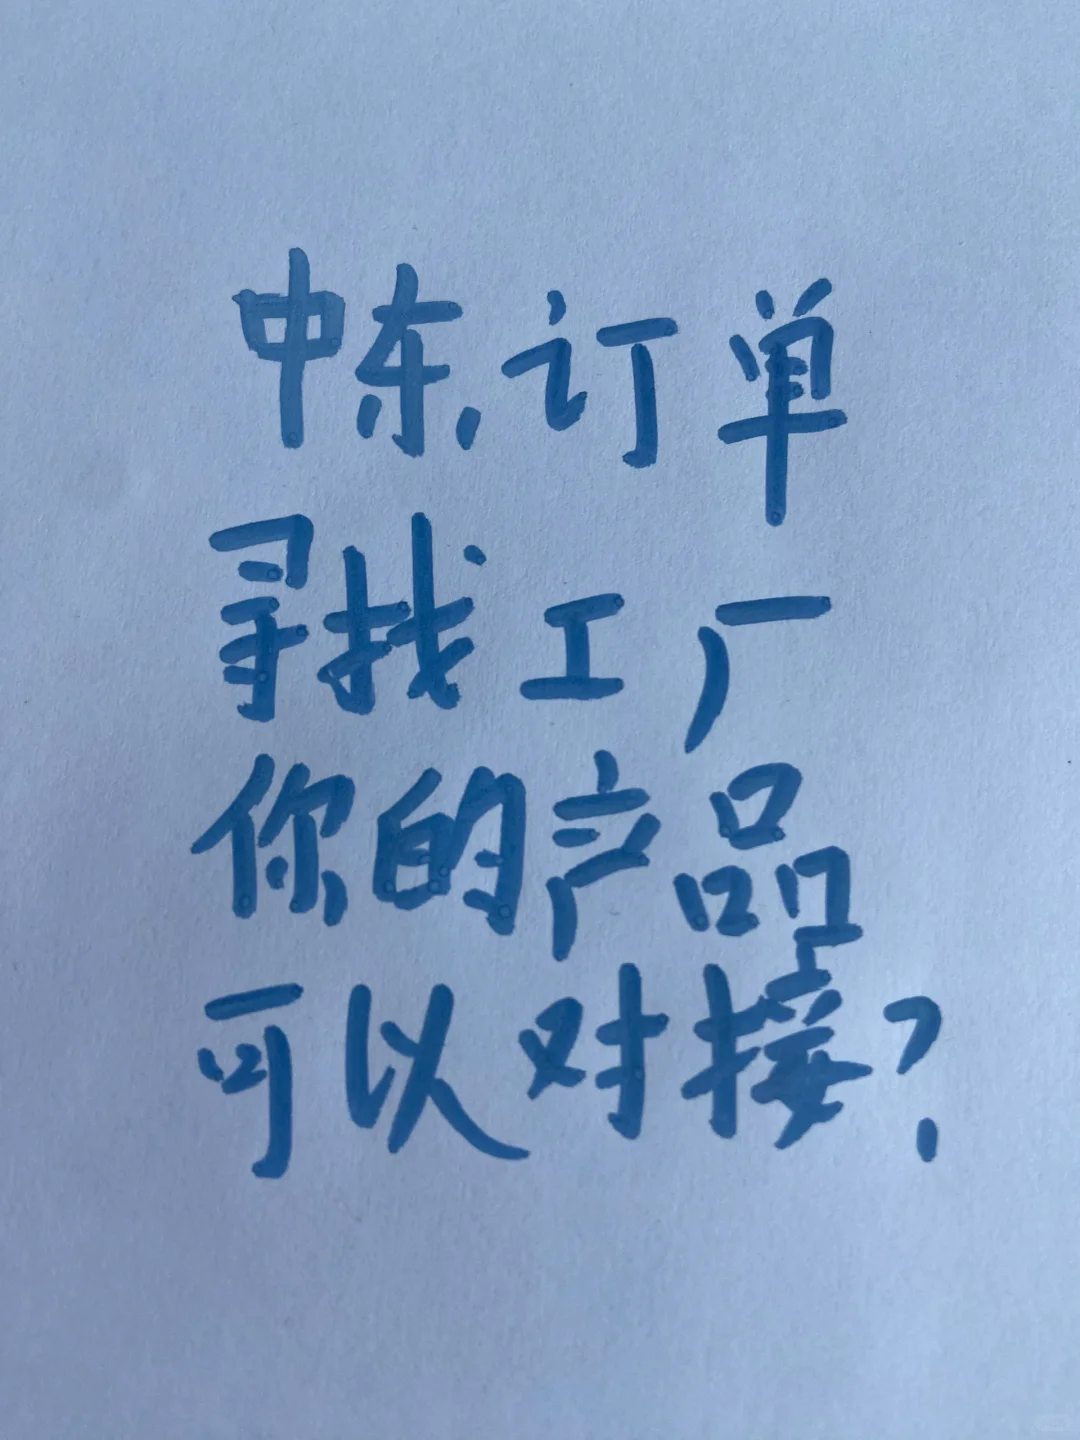 中东订单
寻找工厂
你的产品
可以对接?